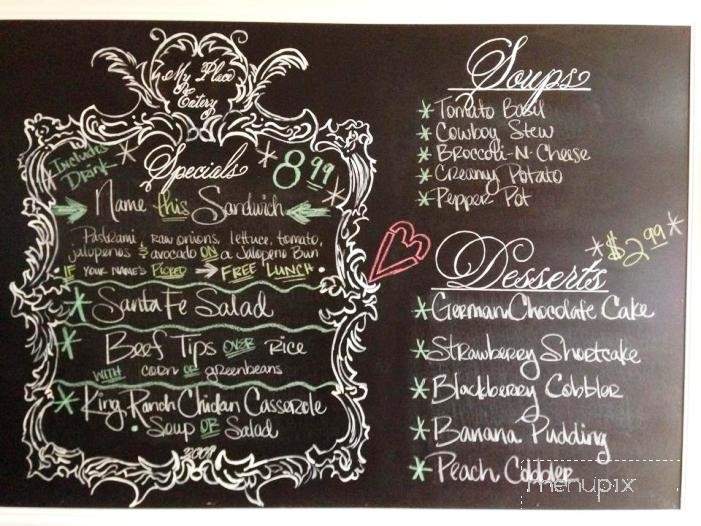 My Place
Eatery
Includes
Drink
Specials
8.99
Name this Sandwich
Pastrami, raw onions, lettuce, tomato,
jalapenos & avocado ON a Jalapeno Bun
IF YOUR NAME'S PICKED → FREE LUNCH.
Santa Fe Salad
Beef Tips OVER Rice
WITH corn OR greenbeans
King Ranch Chicken Casserole
Soup OR Salad
2009
Soups
Tomato Basil
Cowboy Stew
Broccoli-N-Cheese
Creamy Potato
Pepper Pot
$2.99
Desserts
German Chocolate Cake
Strawberry Shortcake
Blackberry Cobbler
Banana Pudding
Peach Cobbler
menupix